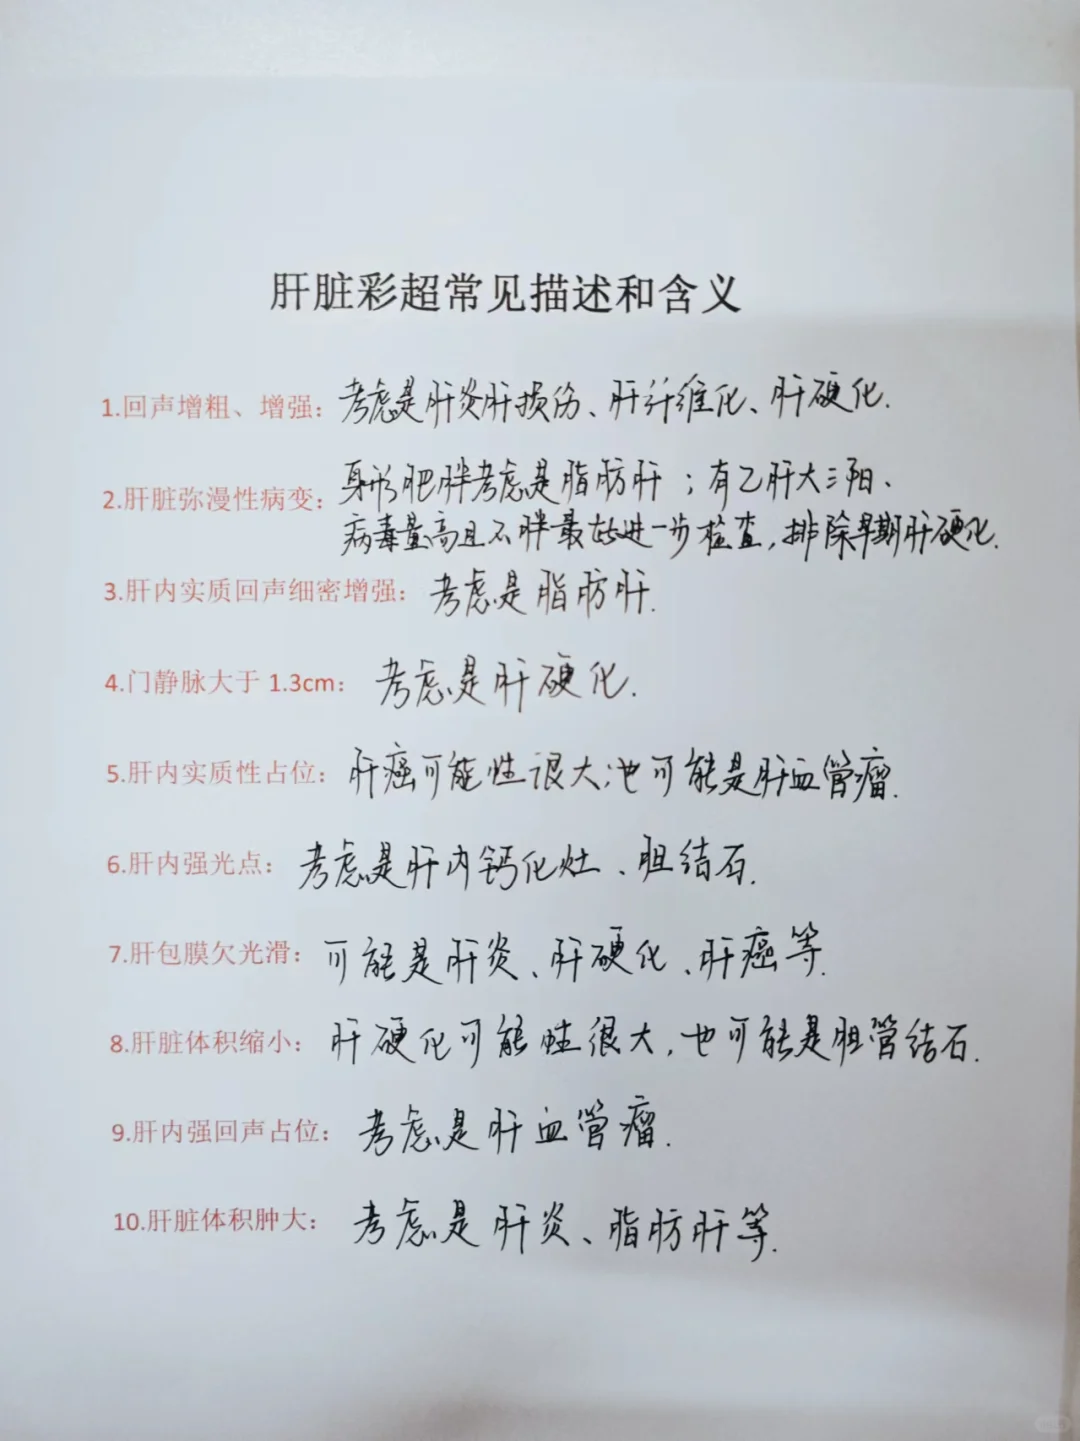 肝脏彩超常见描述和含义
1.回声增粗、增强：考虑是肝炎肝损伤、肝纤维化、肝硬化.
2.肝脏弥漫性病变：身形肥胖考虑是脂肪肝；有乙肝大三阳、
病毒量高且不胖最好进一步检查，排除早期肝硬化.
3.肝内实质回声细密增强：考虑是脂肪肝.
4.门静脉大于 1.3cm：考虑是肝硬化.
5.肝内实质性占位：肝癌可能性很大;也可能是肝血管瘤.
6.肝内强光点：考虑是肝内钙化灶、胆结石.
7.肝包膜欠光滑：可能是肝炎、肝硬化、肝癌等.
8.肝脏体积缩小：肝硬化可能性很大，也可能是胆管结石.
9.肝内强回声占位：考虑是肝血管瘤.
10.肝脏体积肿大：考虑是肝炎、脂肪肝等.